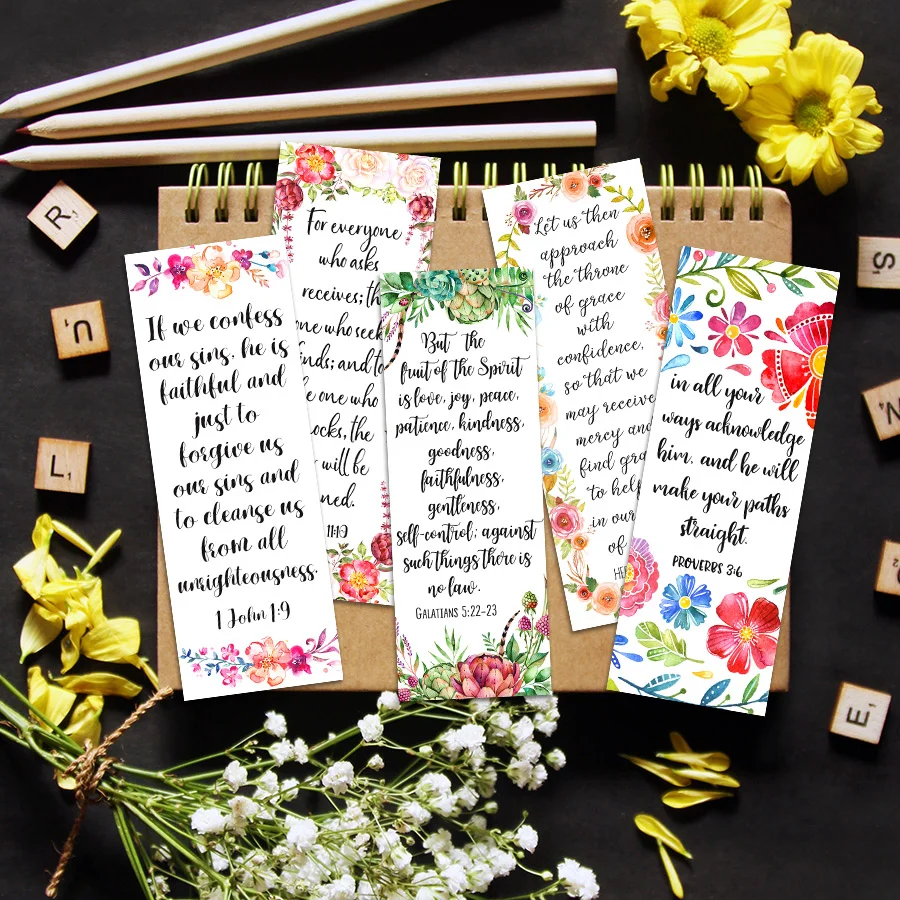 If we confess
our sins, he is
faithful and
just to
forgive us
our sins and
to cleanse us
from all
unrighteousness.
1 John 1:9
For everyone
who asks
receives; th
ne who seek
nds; and to
e one who
ocks, the
will be
ned.
11:10
But the
fruit of the Spirit
is love, joy, peace,
patience, kindness,
goodness,
faithfulness,
gentleness,
self-control; against
such things there is
no law.
Galatians 5:22-23
Let us then
approach
the throne
of grace
with
confidence,
so that we
may receive
mercy and
find gra
to help
in our
of
HE
in all your
ways acknowledge
him, and he will
make your paths
straight.
Proverbs 3:6
R
U
L
S
N
E